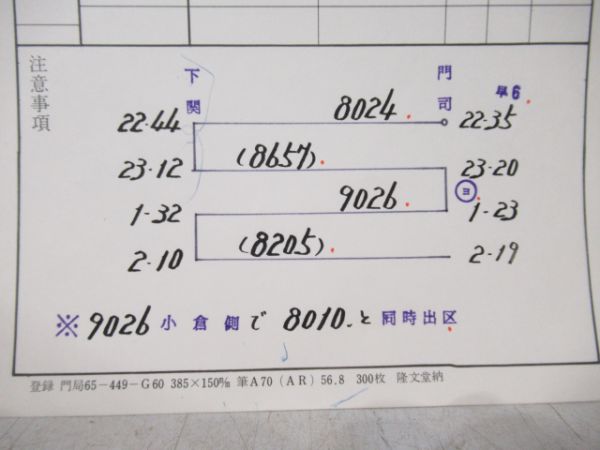 注意事項
下関 門司 早6.
22-44 8024. 22-35
23-12 (8657). 23-20
1-32 9026. ヨ 1-23
2-10 (8205). 2-19
※9026小倉側で8010.と同時出区.
登録 門局65-449-G60 385×150㎜ 筆A70(AR)56.8 300枚 隆文堂納